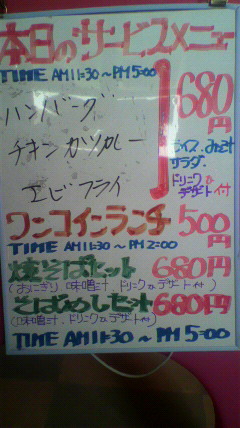 本日のサービスメニュー
TIME AM11:30~PM5:00
ハンバーグ
チキンカツカレー
エビフライ
680円
ライス みそ汁
サラダ.
ドリンク&
デザート付
ワンコインランチ 500円
TIME AM11:30~PM2:00
焼そばセット 680円
(おにぎり、味噌汁、ドリンク&デザート付)
そばめしセット 680円
(味噌汁、ドリンク&デザート付)
TIME AM11:30~PM5:00